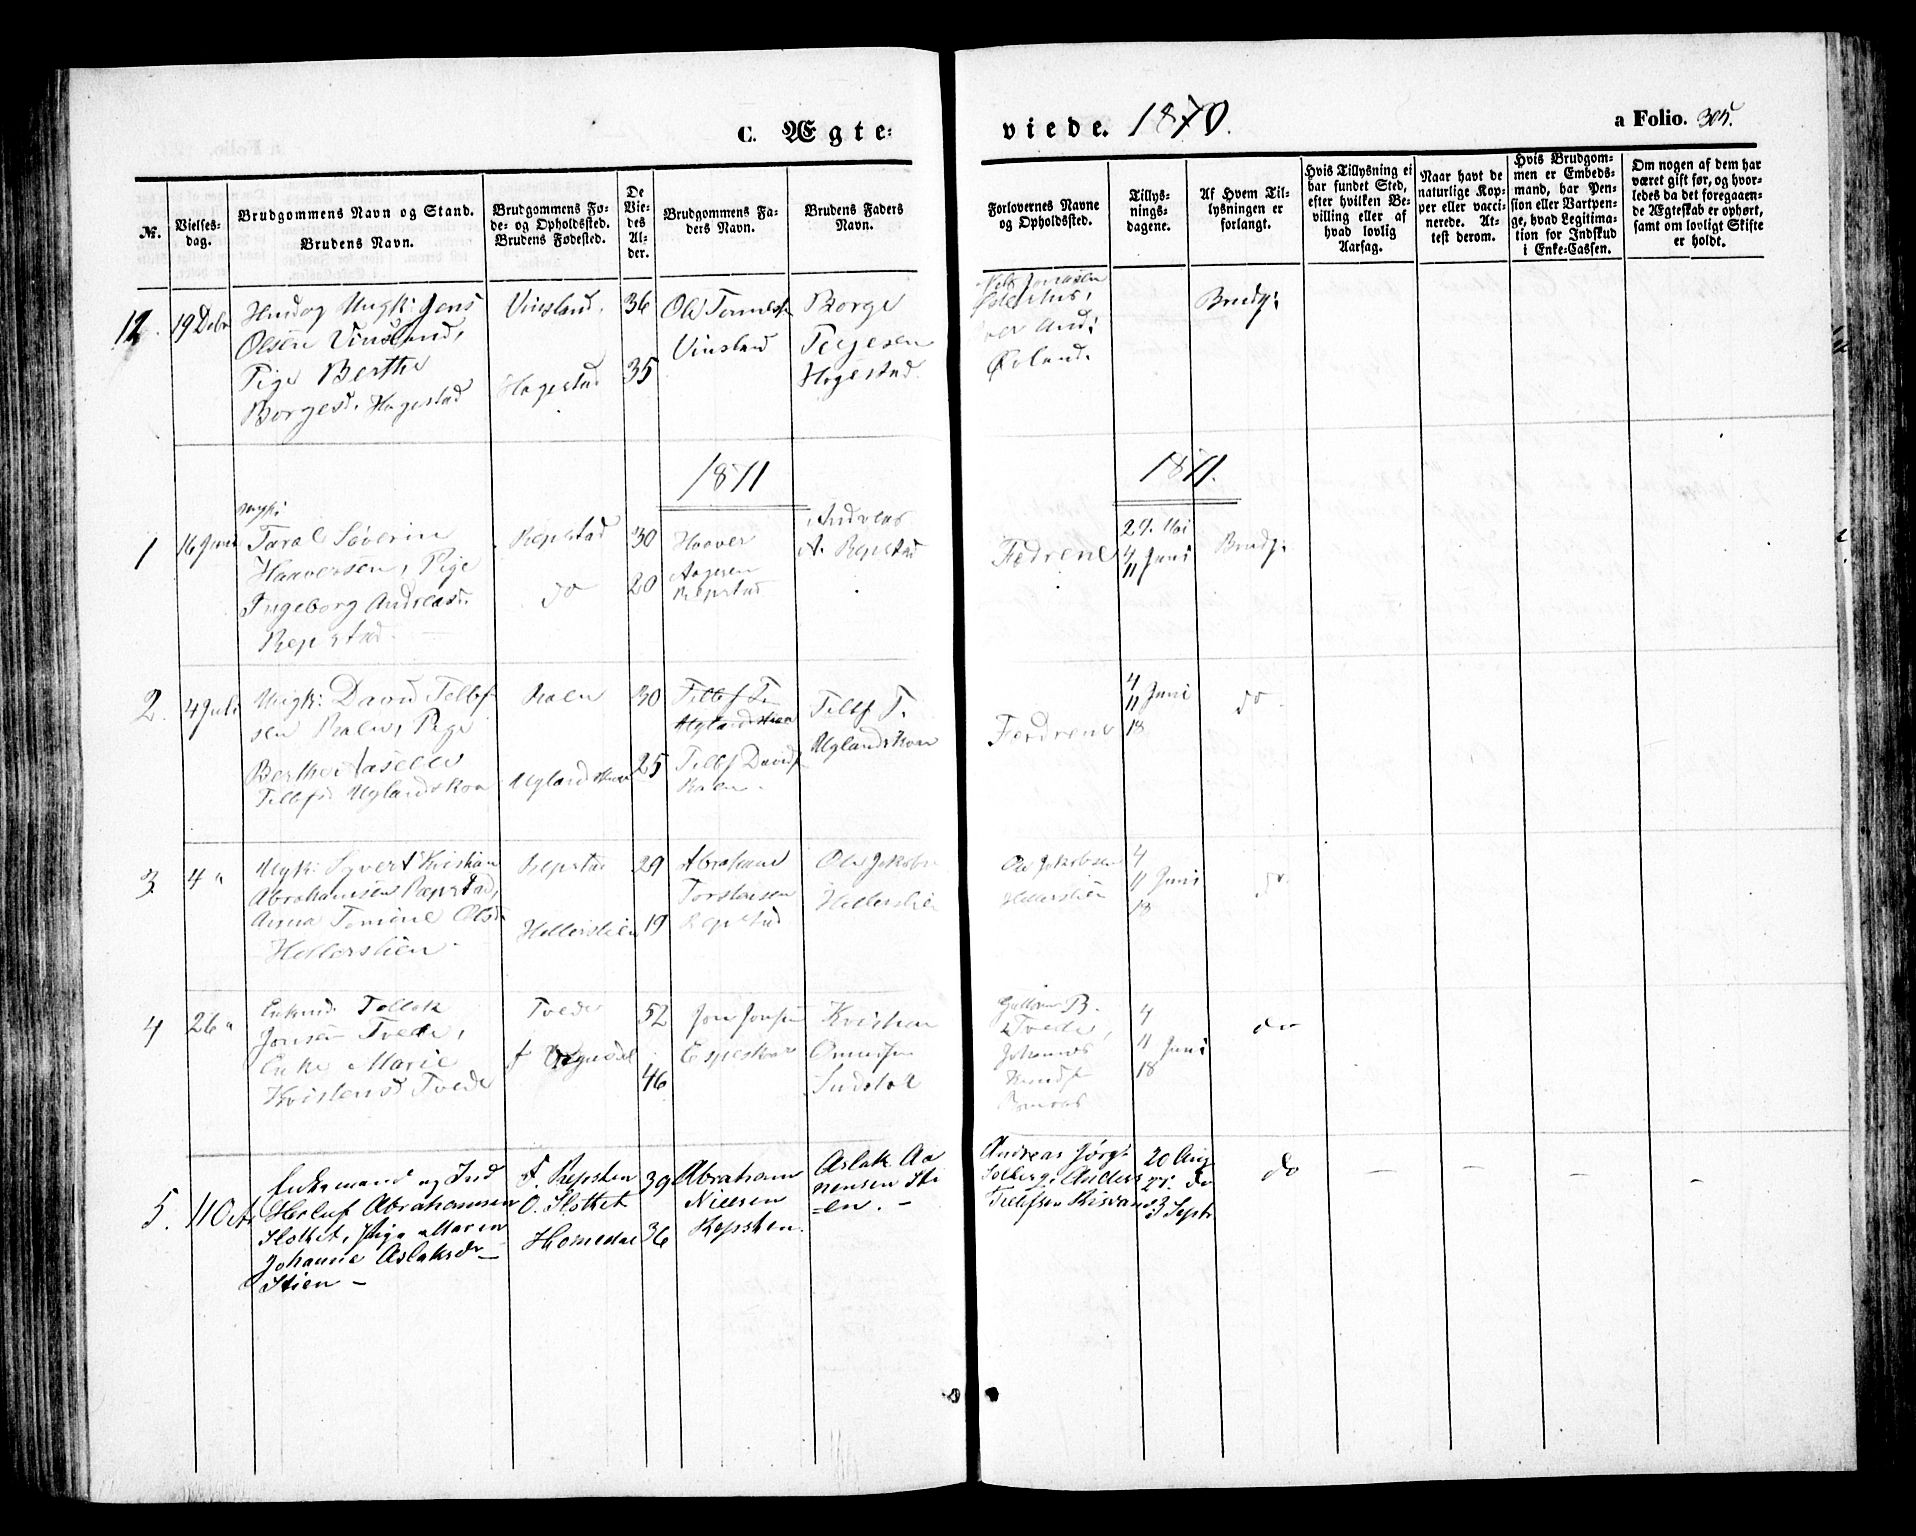 C. Ægte-
viede. 1870.
a Folio. 305.
№.
Vielses-
dag.
Brudgommens Navn og Stand.
Brudens Navn.
Brudgommens Fø-
de- og Opholdssted.
Brudens Fødested.
De
Vie-
des
Al-
der.
Brudgommens Fa-
ders Navn.
Brudens Faders
Navn.
Forlovernes Navne
og Opholdssted.
Tillys-
nings-
dagene.
Af Hvem Til-
lysningen er
forlangt.
Hvis Tillysning ei
har fundet Sted,
efter hvilken Be-
villing eller af
hvad lovlig
Aarsag.
Naar havt de
naturlige Kop-
per eller vacci-
nerede. At-
test derom.
Hvis Brudgom-
men er Embeds-
mand, har Pen-
sion eller Vartpen-
ge, hvad Legitima-
tion for Indskud
i Enke-Cassen.
Om nogen af dem har
været gift før, og hvor-
ledes da det foregaaen-
de Ægteskab er ophørt,
samt om lovligt Skifte
er holdt.
12. 19 Debr
Ungk: Jens
Olsen Vinsland,
Pige Berthe
Borgesd. Hagestad
Vinsland.
Hagestad
36
35
Ole
Vinsland
Borge
Terjesen
Hagestad.
Øvland.
Brudg:
1871
1871.
1 16 Juni
Ungk:
Taral Severin
Haaversen, Pige
Ingeborg Andreasd.
Repstad.
Repstad
do
30
20
Haaver
Aagesen
Repstad
Andreas
A. Repstad
Fædrene
29. Mai
4
11 Juni
Brudg:
2. 4 Juli
Ungk: David Tellef
sen Raen, Pige
Berthe Aselie
Tellefs. Uglandskaa
Raen
Uglandskaa
30
25
Tellef T.
Uglandskaa
Tellef Davids
Raen.
Tellef T.
Uglandskaa
Fædrene
4
11 Juni
18
do.
3 4 "
Ungk: Syvert Kristian
Abrahamsen Repstad,
Anna Tomine Olsd.
Hellerslien.
Repstad
Hellerslien
29
19
Abraham
Torstensen
Repstad
Ole Jakobs
Hellerslien
Ole Jakobsen
Hellerslien
4
11 Juni
18
do
4 26 "
Enkmd. Tellak
Jonsen Tvede,
Enke Marie
Kristensd Tvede
Tvede
52
46
Jon Jonsen
Espeskaar
Kristen
Omunsen
B.
Tvede,
Johannes
Knuds
4
11 Juni
18
do
5. 11 Octr
Enkemand og Ind
Herluf Abrahamsen
Slottet, Pige Maren
Johanne Aslaksdr
Stien –
F. Repsten
O. Slottet
Homedal
39
36
Abraham
Nielsen
Repsten.
Aslak Aa
nensen Sti
=en. –
Andreas Jørg:
Solberg, Anders
Tellefsen Risvand
20 Aug
27. do
3 Septr
do
– – – –